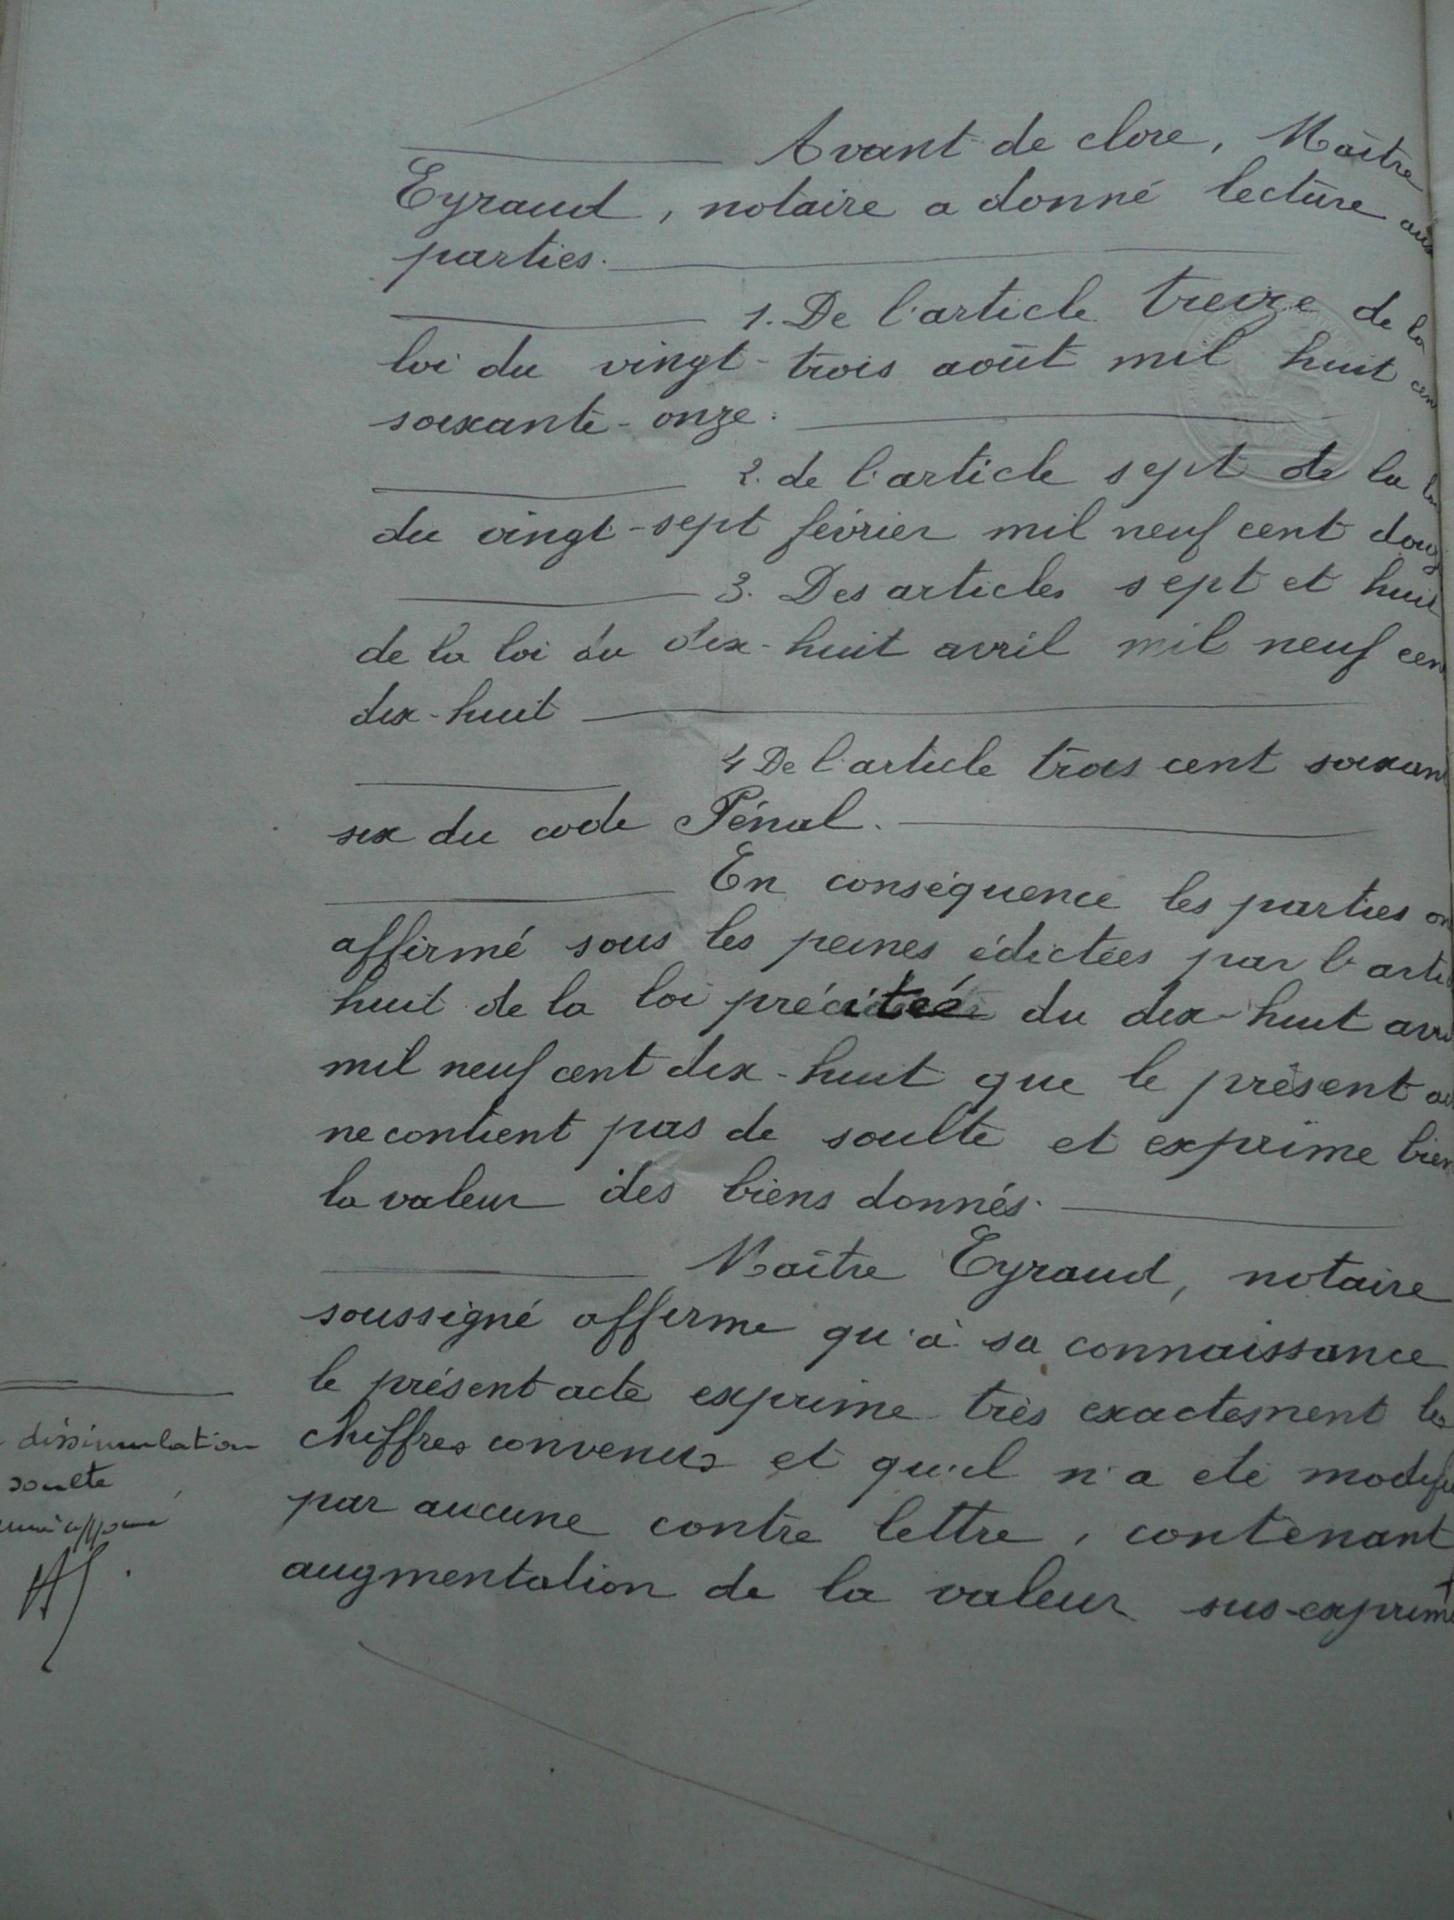 Avant de clore, Maître
Eyraud, notaire a donné lecture aux
parties.
1. De l'article treize de la
loi du vingt-trois août mil huit cent
soixante-onze.
2. de l'article sept de la loi
du vingt-sept février mil neuf cent douz
3. Des articles sept et huit
de la loi du dix-huit avril mil neuf cen
dix-huit
4 De l'article trois cent soixan
six du code Pénal.
En conséquence les parties on
affirmé sous les peines édictées par l'artic
huit de la loi précitée du dix-huit avri
mil neuf cent dix-huit que le présent ac
ne contient pas de soulte et exprime bien
la valeur des biens donnés.
Maître Eyraud, notaire
soussigné affirme qu'à sa connaissance
le présent acte exprime très exactement les
chiffres convenus et qu'il n'a été modifié
par aucune contre lettre, contenant
augmentation de la valeur sus-exprimé
dissimulation
soulte